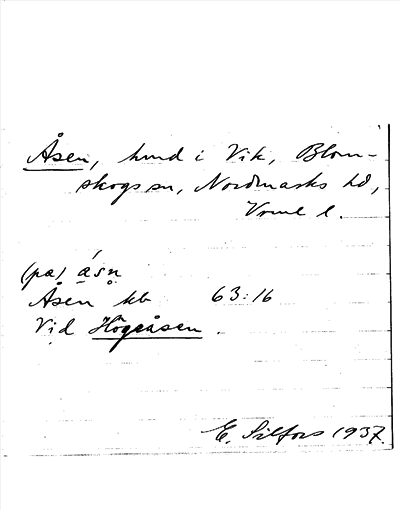 Åsen, hmd i Vik, Blom-
skogs sn, Nordmarks hd,
Värml l.
(pa) ásn̥
Åsen kb 63:16
Vid Högeåsen.
E. Silfors 1937.